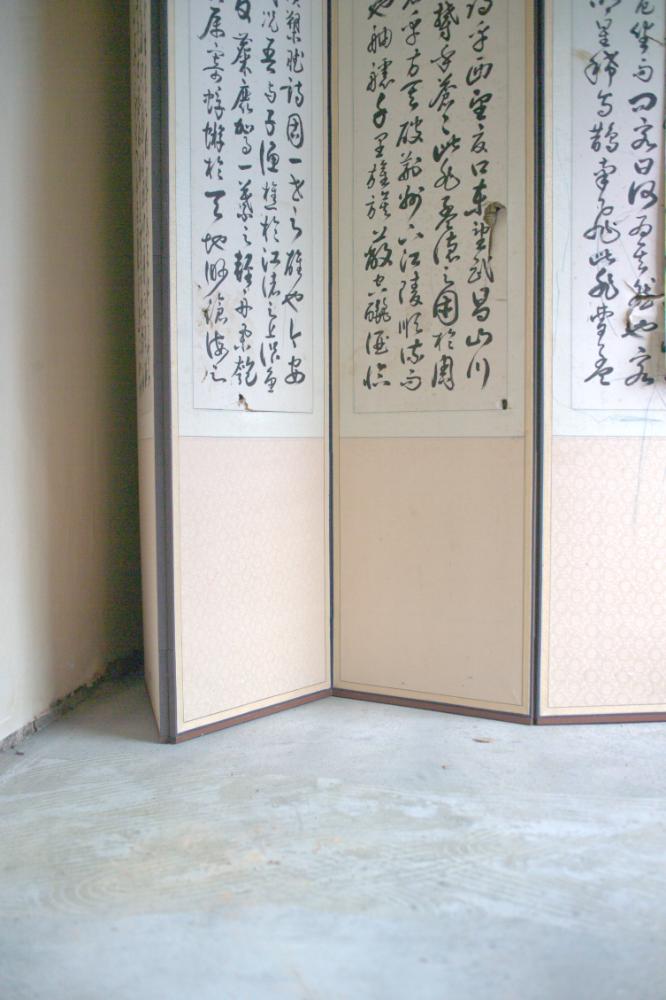 危坐而問客曰何為其然也客
明星稀烏鵲南飛此非曹孟
詩乎西望夏口東望武昌山川
鬱乎蒼々此非孟德之困於周
者乎方其破荊州下江陵順流而
也舳艫千里旌旗蔽空釃酒臨
槊賦詩固一世之雄也今安
況吾與子漁樵於江渚之上侶魚
友麋鹿駕一葉之輕舟擧匏
屬寄蜉蝣於天地渺滄海之